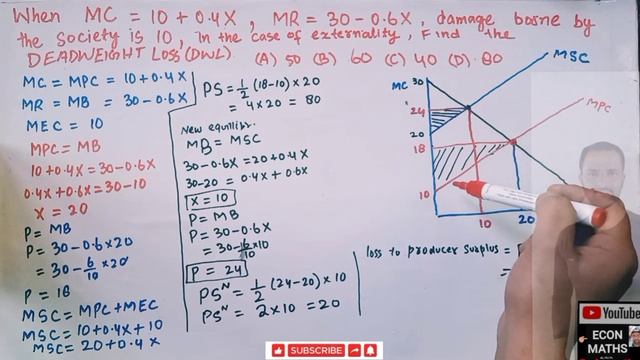 When MC = 10 + 0.4X , MR = 30 - 0.6X , damage borne by
the society is 10, in the case of externality, Find the
DEADWEIGHT LOSS (DWL). (A) 50 (B) 60 (C) 40 (D) 80
MC = MPC = 10 + 0.4X
MR = MB = 30 - 0.6X
MEC = 10
MPC = MB
10 + 0.4X = 30 - 0.6X
0.4X + 0.6X = 30 - 10
X = 20
P = MB
P = 30 - 0.6 × 20
= 30 - 6/10 × 20
P = 18
MSC = MPC + MEC
MSC = 10 + 0.4X + 10
MSC = 20 + 0.4X
PS = 1/2 (18-10) × 20
= 4 × 20 = 80
New equilibr.
MB = MSC
30 - 0.6X = 20 + 0.4X
30 - 20 = 0.4X + 0.6X
X = 10
P = MB
P = 30 - 0.6X
= 30 - 6/10 × 10
P = 24
PSᴺ = 1/2 (24-20) × 10
PSᴺ = 2 × 10 = 20
MC 30
24
20
18
10
10
20
MSC
MPC
loss to producer surplus =
=
SUBSCRIBE
YouTube
ECON
MATHS